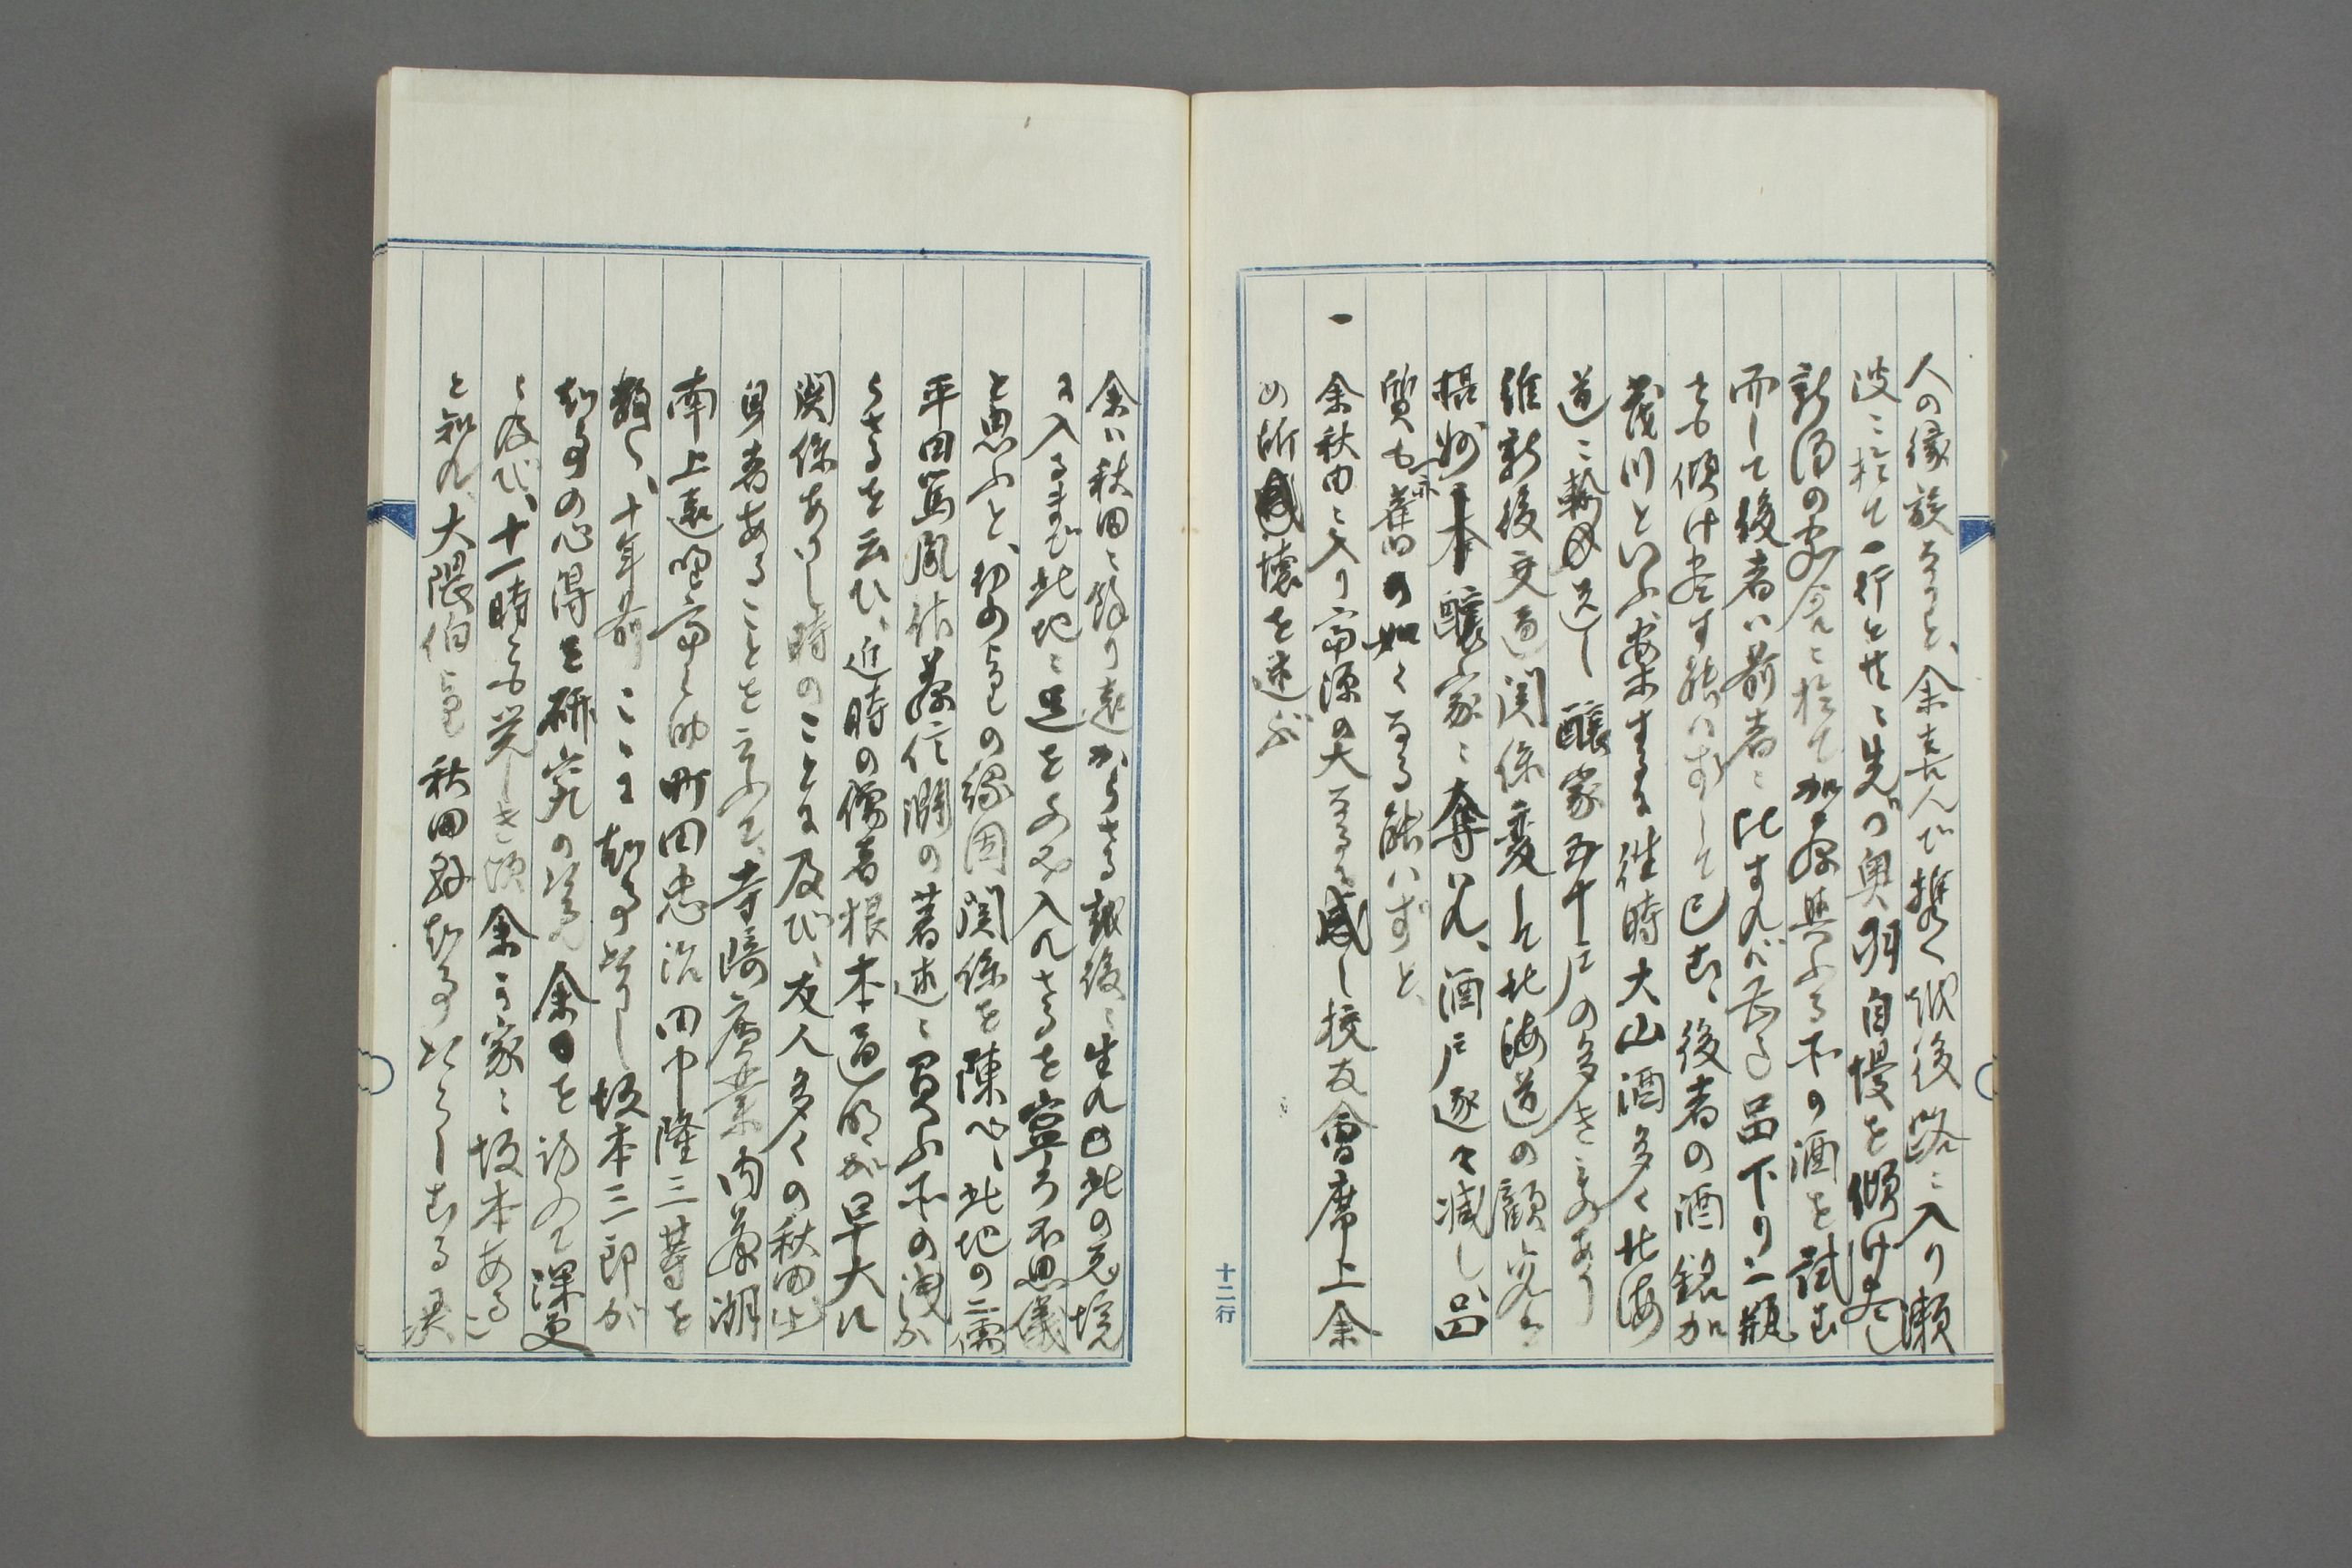 人の縁族なりと、余喜んで携へ越後路に入り瀬
波に於て一行と共に先づ奥羽自慢を傾け尽し
新潟の宴会に於て加藤興ふる所の酒を試む
而して後者は前者に比すれば品下り二瓶
とも傾け尽す能はずして已む、後者の酒銘加
茂川といふ、案するに往時大山酒多く北海
道に輸送し醸家五十戸の多きに及あり
維新後交通関係変して北海道の顧客は
摂州醸家に奪はれ、酒戸逐々減し、品
質も亦舊の如くなる能はずと、
一 余秋田に入り富源の大なるに感し校友會席上余
の所懐を述ぶ
余は秋田に餘り遠からさる越後に生れ此の境
に入るまで此地に足をふみ入れさるを寧ろ不思儀
と思ふと、初め余の縁因関係を陳べ、此地の二儒
平田篤胤佐藤信淵の著述に負ふ所の浅か
らさるを云ひ、近時の儒者根本通明が早大に
関係ありし時のことに及び、友人多くの秋田出
身者あることを云ふて、寺崎廣業内藤湖
南上遠野富之助町田忠治田中隆三等を
数へ、十年前こゝに知事たりし坂本三郎が
知事の心得を研究の為め余を訪ふて深更
に及び、十一時とも覚しき頃余の家に坂本ある
と知れ、大隈伯 秋田縣知事たらしむる
十二行